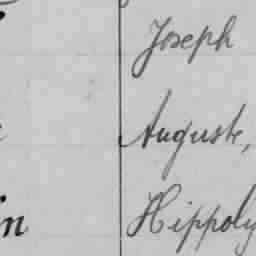 Joseph
Auguste,
in Hippoly